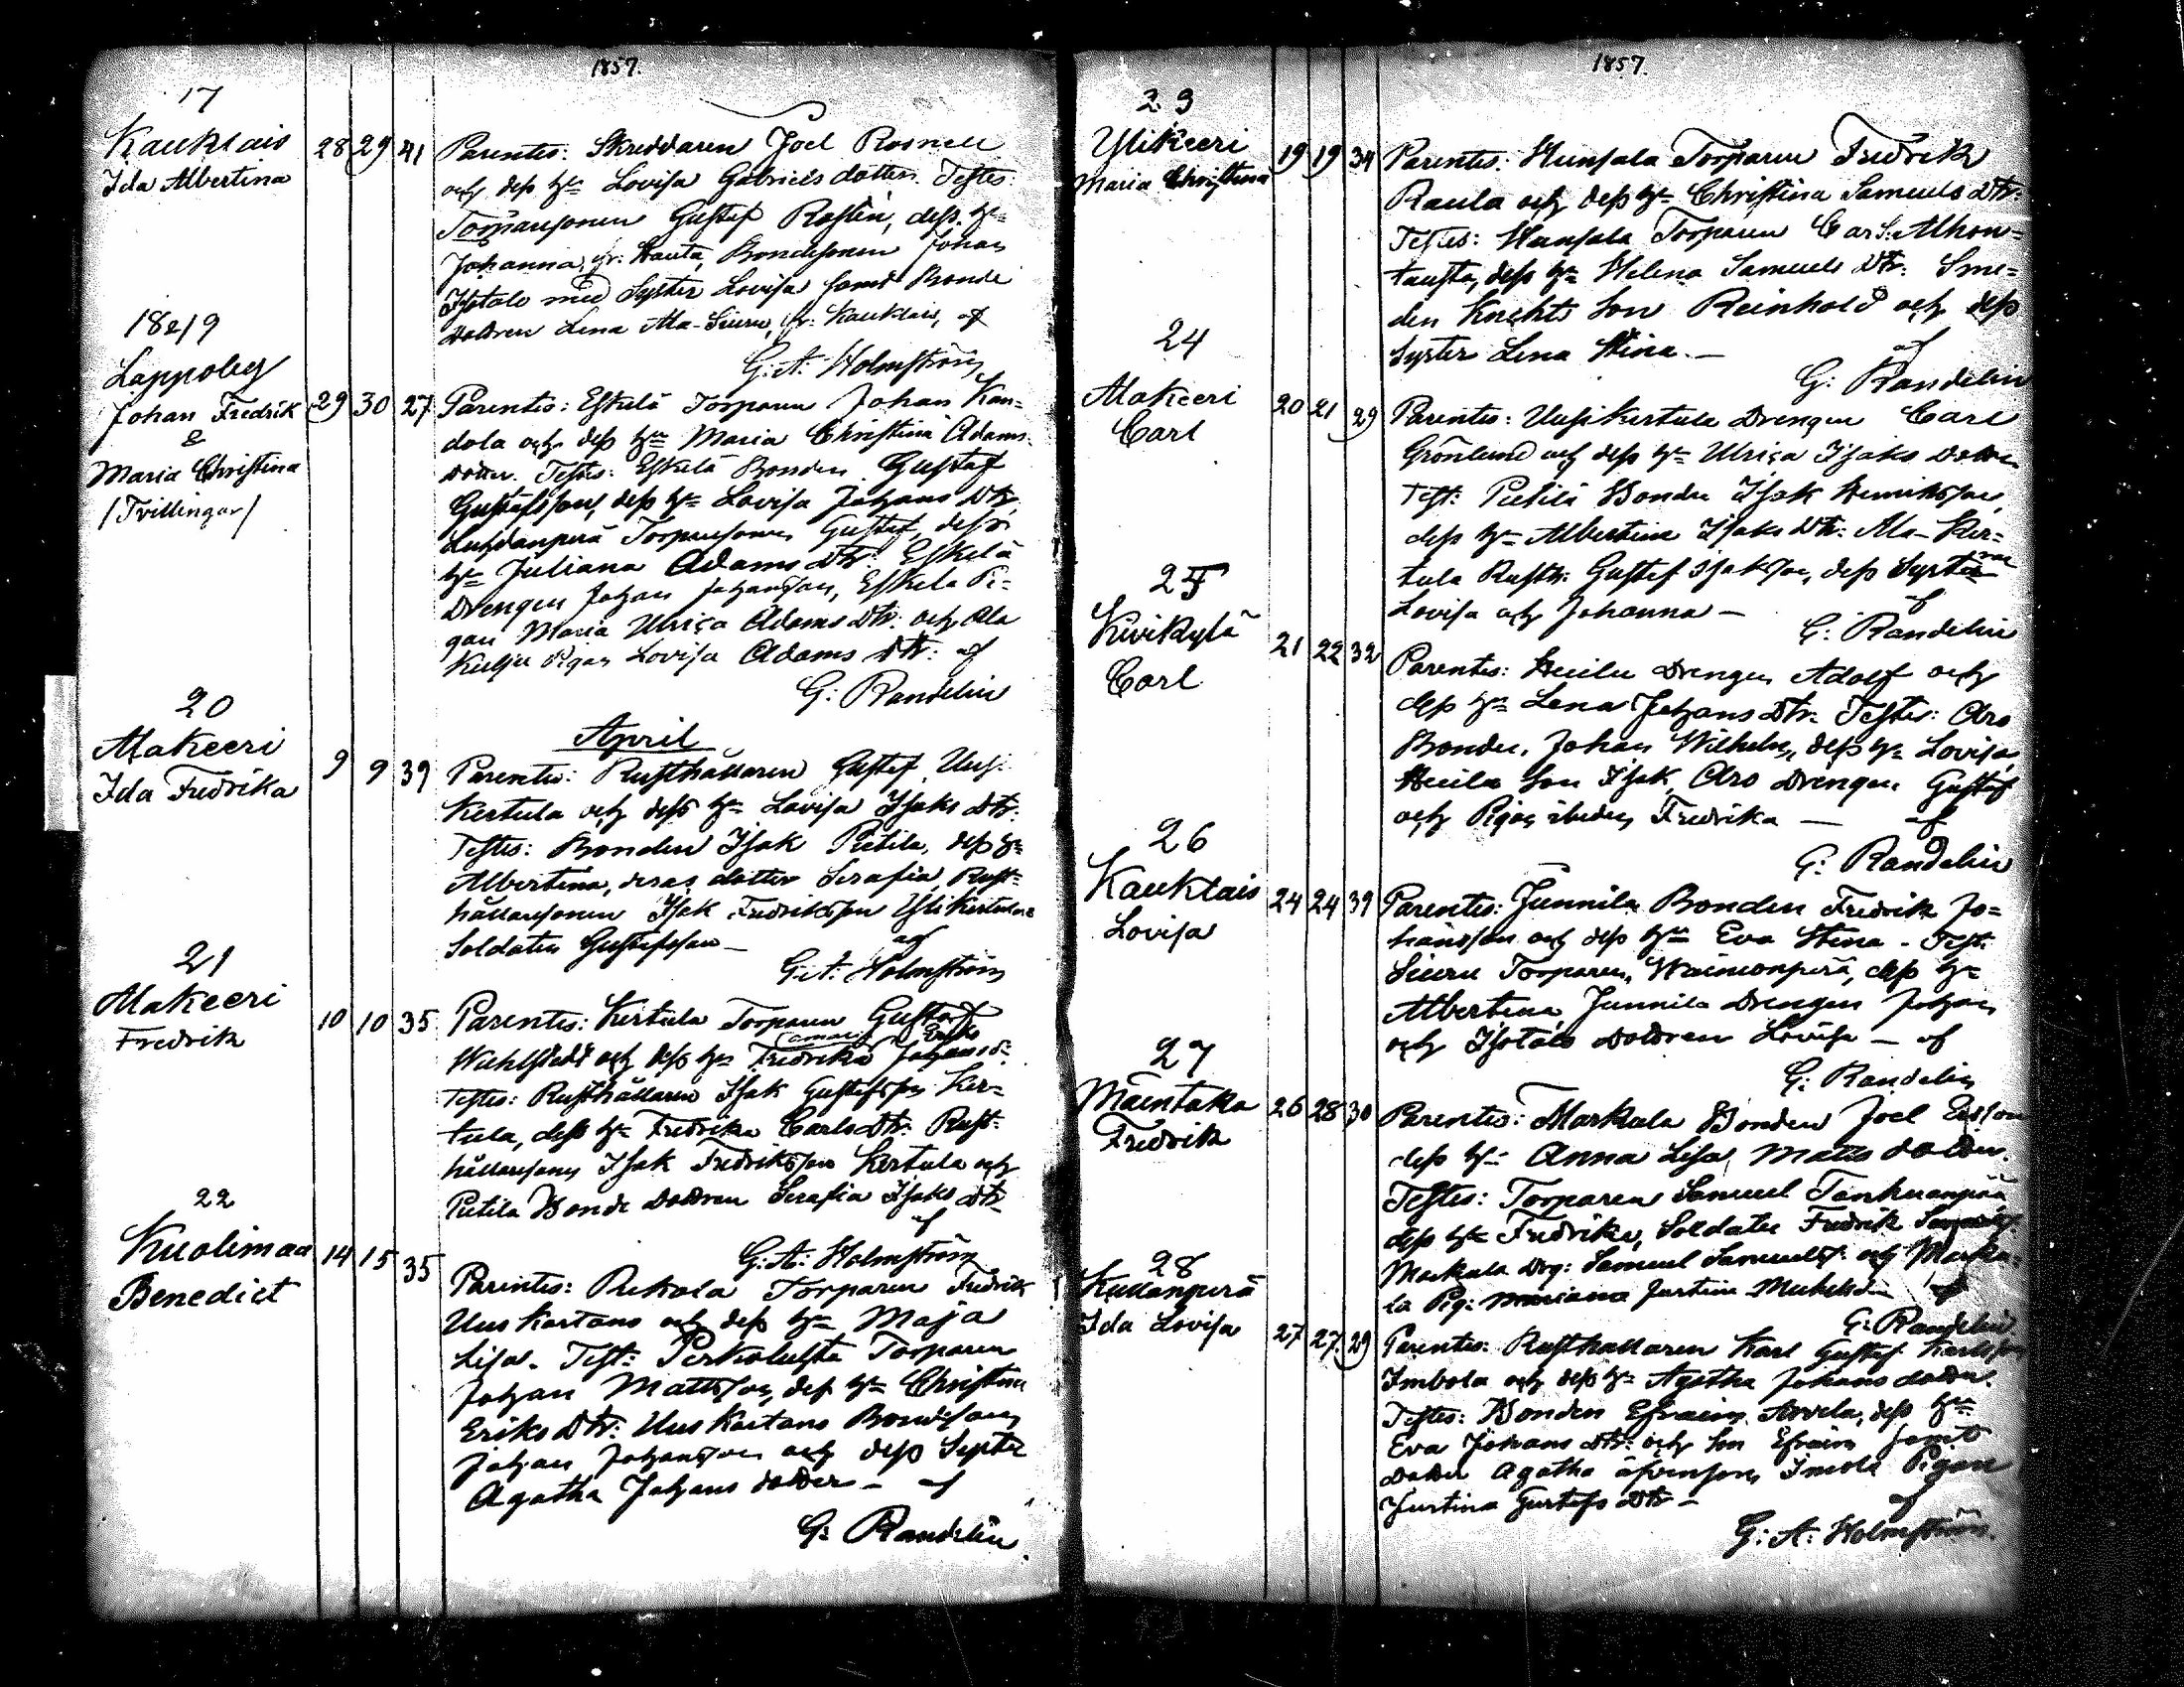 1857.
17
Kauklais
Ida Albertina
28 29 41
Parentes: Skreddaren Joel Rosnell
och dess hu Lovisa Gabriels dotter. Testes:
Torparesonen Gustaf Rostin, dess hu
Johanna, fr. Hauta, Bondesonen Johan
Isotalo med Syster Lovisa samt Bonde
Dottren Lena Ala-Siuru, fr. Kauklais, af
G: A: Holmström
18 & 19
Lappoby
Johan Fredrik
&
Maria Christina
/Tvillingar/
29 30 27
Parentes: Eskelä Torparen Johan Kan-
dola och dess hu Maria Christina Adams
dotter. Testes: Eskelä Bonden Gustaf
Gustafsson, dess hu Lovisa Johans Dtr,
Torparesonen Gustaf, dess
hu Juliana Adams Dtr: Eskelä
Drengen Johan Johansson, Eskelä Pi-
gan Maria Ulrica Adams Dtr: och Ala
Kulju Pigan Lovisa Adams Dtr: af
G: Randelin
April
20
Alakeeri
Ida Fredrika
9 9 39
Parentes: Rusthållaren Gustaf Uusi
Kertula och dess hu Lovisa Isaks Dtr:
Testes: Bonden Isak Pietilä, dess hu
Albertina, deras dotter Serafia, Rust-
hållaresonen Isak Fredriksson Ylikertula
Soldaten Gustafsson — af
G: A: Holmström
21
Alakeeri
Fredrik
10 10 35
Parentes: Kertula Torparen Gustaf
Wahlstedt och dess hu Fredrika Johansd:
Testes: Rusthållaren Isak Gustafsson Ker-
tula, dess hu Fredrika Carls Dtr: Rust-
hållaresonen Isak Fredriksson Kertula och
Pietilä Bonde Dottren Serafia Isaks Dtr
af
G: A: Holmström
22
Kuolimaa
Benedict
14 15 35
Parentes: Rekola Torparen Fredrik
Uuskartano och dess hu Maja
Lisa. Test: Torparen
Johan Mattsson, dess hu Christina
Eriks Dtr: Uuskartano Bondesonen
Johan Johansson och dess Syster
Agatha Johans dotter — af
G: Randelin
1857.
23
Ylikeeri
Maria Christina
19 19 34
Parentes: Hunsala Torparen Fredrik
Raula och dess hu Christina Samuels Dtr:
Testes: Hunsala Torparen Carl Alhon-
tausta, dess hu Helena Samuels Dtr: Sme-
den Knekts Son Reinhold och dess
Syster Lena Stina. — af
G: Randelin
24
Alakeeri
Carl
20 21 29
Parentes: Uusikertula Drengen Carl
Grönlund och dess hu Ulrica Isaks Dotter
Test: Pietilä Bonden Isak Henriksson,
dess hu Albertina Isaks Dtr: Ala-Ker-
tula Rusth: Gustaf Isaksson, dess Systrar
Lovisa och Johanna — af
G: Randelin
25
Kivikylä
Carl
21 22 32
Parentes: Heikilä Drengen Adolf och
dess hu Lena Johans Dtr. Testes: Aro
Bonden, Johan Wilhelm, dess hu Lovisa,
Son Isak, Aro Drengen Gustaf
och Pigan ibidem Fredrika — af
G: Randelin
26
Kauklais
Lovisa
24 24 39
Parentes: Junnila Bonden Fredrik Jo-
hansson och dess hu Eva Stina. Test:
Siuru Torparen, Wainionperä, dess hu
Albertina, Junnila Drengen Johan
och Isotalo Dottren Lovisa — af
G: Randelin
27
Mäentaka
Fredrik
26 28 30
Parentes: Markula Bonden Joel
dess hu Anna Lisa Matts dotter.
Testes: Torparen Samuel Tanhuanpää
dess hu Fredrika, Soldaten Fredrik
Markula Drg: Samuel Samuelss: och Marku-
la Pig: Justina Michelsd: af
G: Randelin
28
Kullanperä
Ida Lovisa
27 27 29
Parentes: Rusthållaren Karl Gustaf Karlsson
Imbola och dess hu Agatha Johans dotter.
Testes: Bonden Efraim Arvela, dess hu
Eva Johans dtr: och Son Efraim samt
Dotter Agatha äfvensom Pigan
Justina Gustafs Dtr — af
G: A: Holmström.